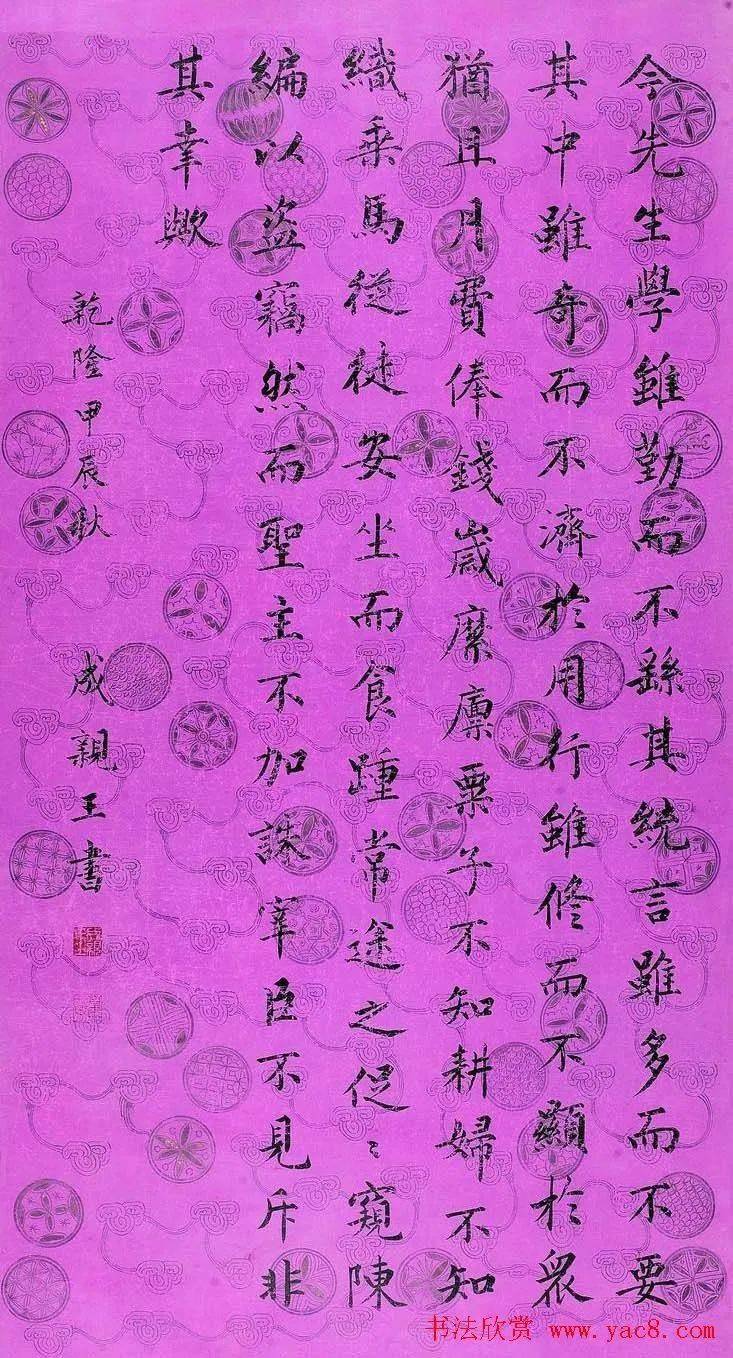 今先生學雖勤而不繇其統言雖多而不要
其中雖奇而不濟於用行雖修而不顯於眾
猶且月費俸錢歲縻廩粟子不知耕婦不知
織乘馬從徒安坐而食踵常途之促〻窺陳
編以盜竊然而聖主不加誅宰臣不見斥非
其幸歟
乾隆甲辰秋
成親王書
书法欣赏 www.yac8.com